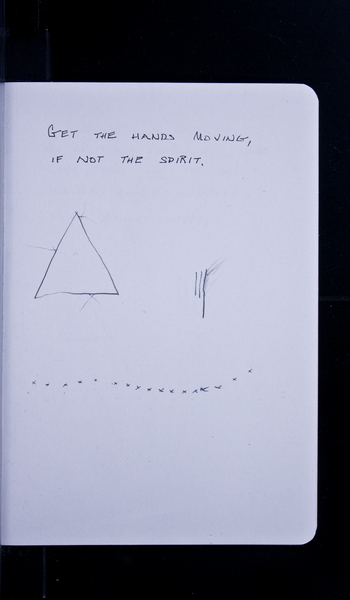 GET THE HANDS MOVING,
IF NOT THE SPIRIT.